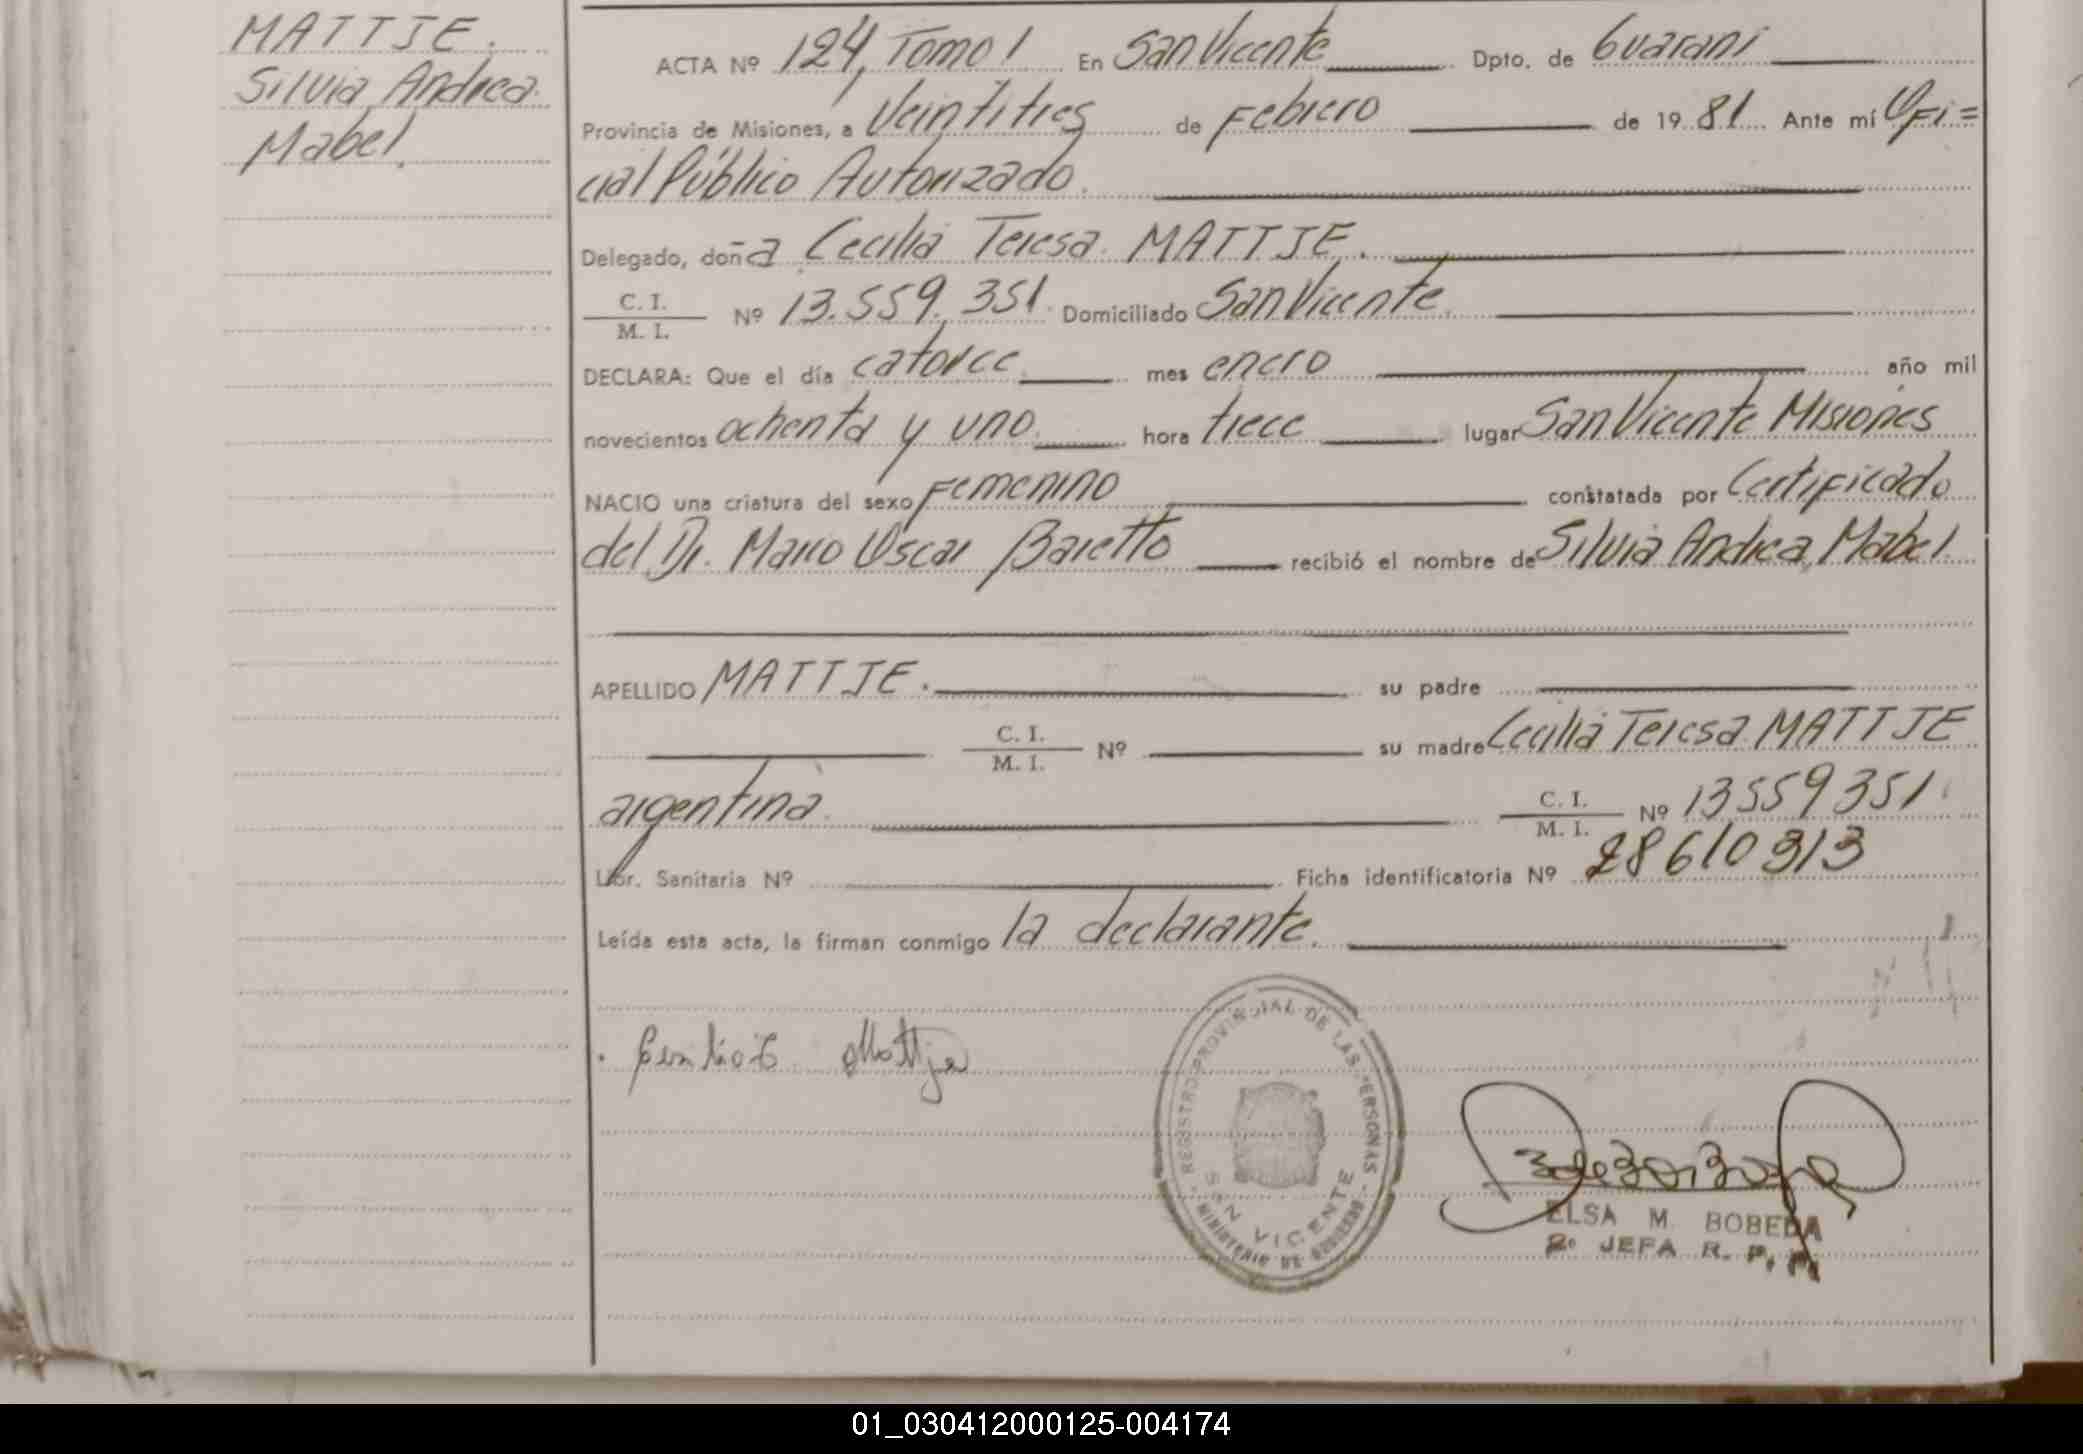 MATTJE.
Silvia Andrea
Mabel.
ACTA Nº 124, Tomo I En San Vicente Dpto. de Guaraní
Provincia de Misiones, a Veintitres de Febrero de 1981 Ante mí Ofi=
cial Público Autorizado.
Delegado, doña Cecilia Teresa MATTJE.
C. I.
M. I. Nº 13.559.351. Domiciliado San Vicente.
DECLARA: Que el día catorce mes enero año mil
novecientos ochenta y uno. hora trece lugar San Vicente Misiones
NACIO una criatura del sexo Femenino constatada por Certificado
del Dr. Mario Oscar Baretto recibió el nombre de Silvia Andrea Mabel.
APELLIDO MATTJE. su padre
C. I.
M. I. Nº su madre Cecilia Teresa MATTJE
argentina. C. I.
M. I. Nº 13559351.
Libr. Sanitaria Nº Ficha identificatoria Nº 28610313
Leída esta acta, la firman conmigo la declarante.
Mattje
REGISTRO PROVINCIAL DE LAS PERSONAS
SAN VICENTE
MINISTERIO DE GOBIERNO
ELSA M. BOBEDA
2º JEFA R. P. P.
01_030412000125-004174